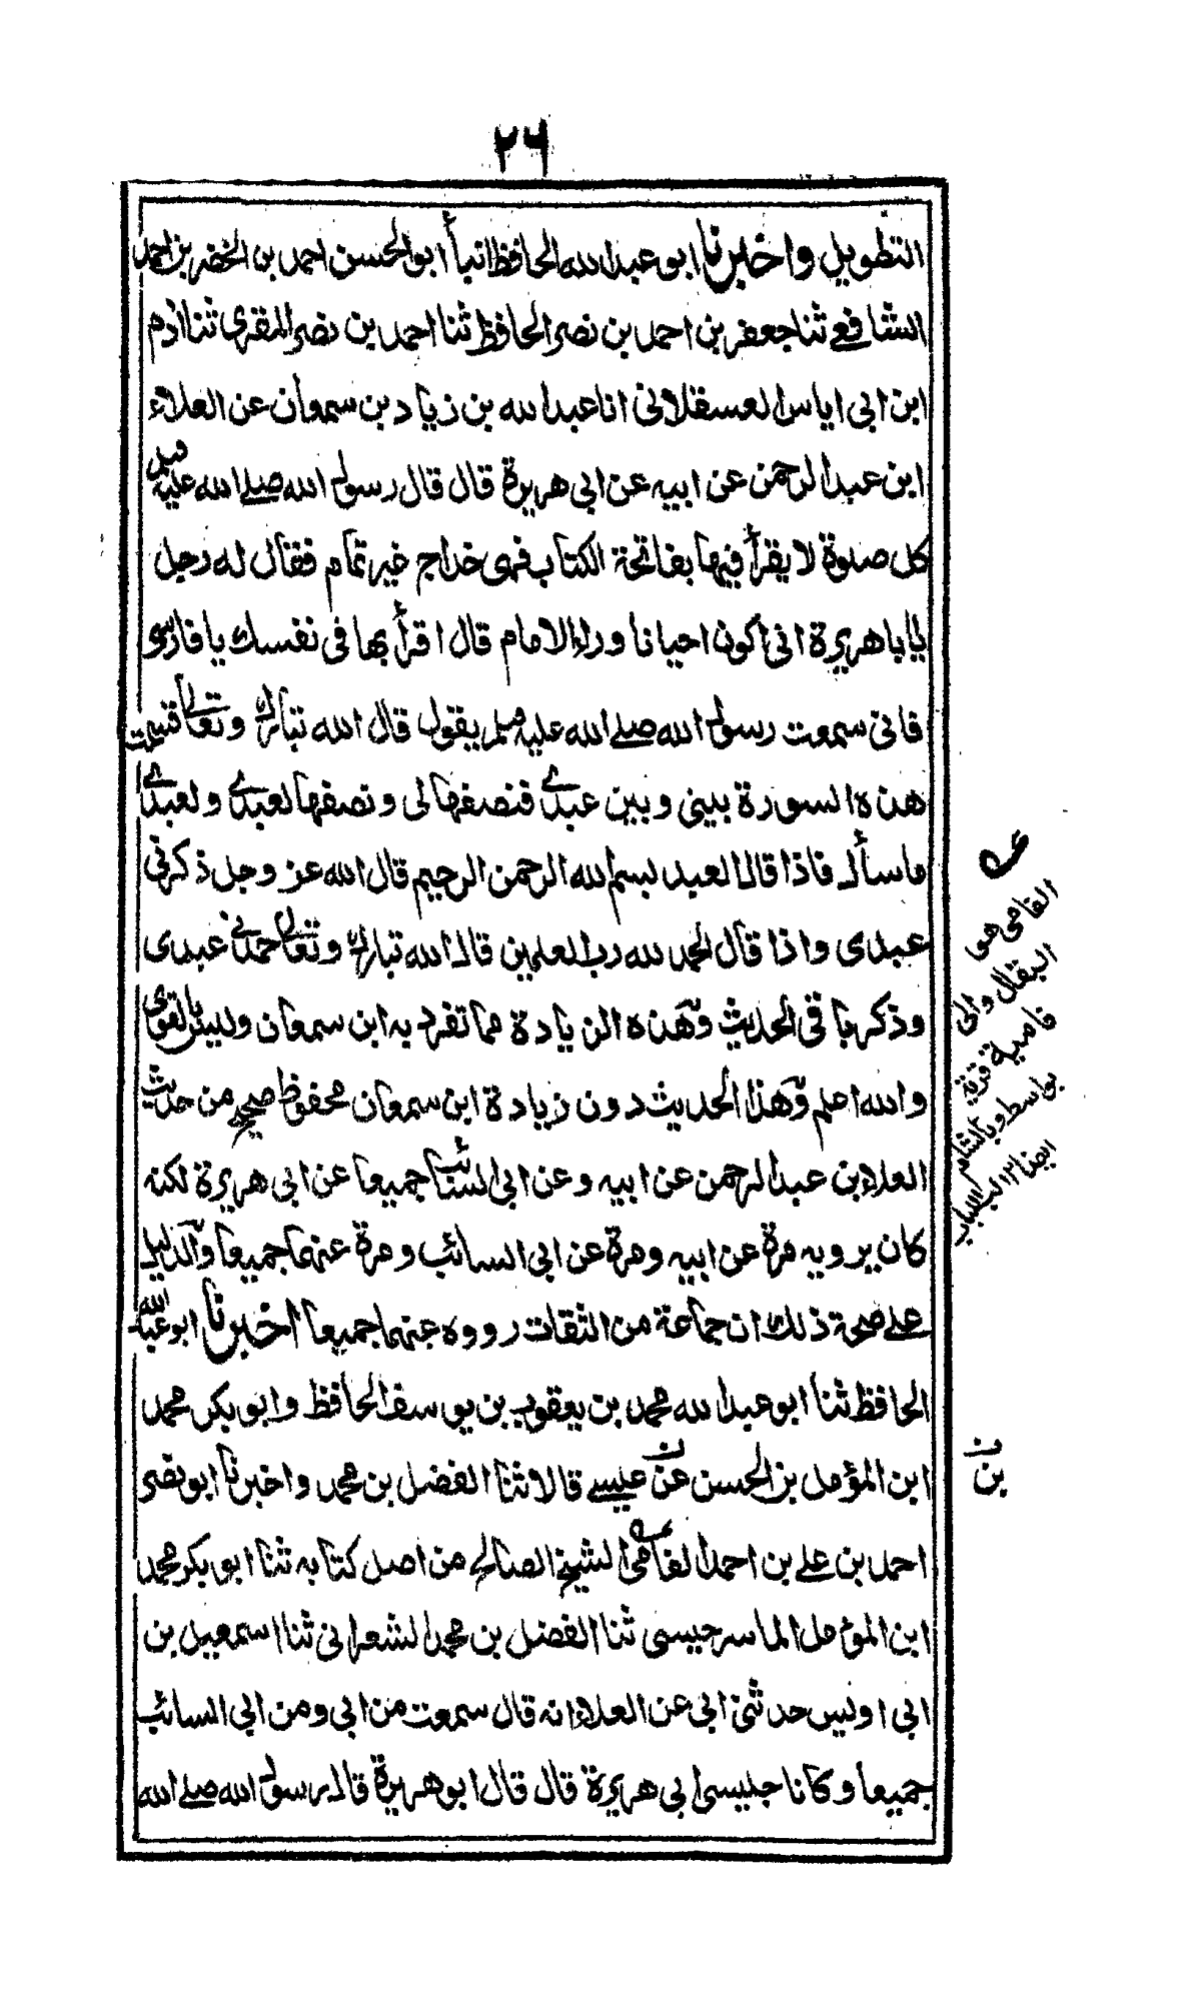 ٢٦
التطويل واخبرنا ابو عبدالله الحافظ انبأ ابوالحسن احمد بن الخضر بن احمد
الشافعے ثنا جعفر بن احمد بن نصر الحافظ ثنا احمد بن نصر المقرى ثنا ادم
ابن ابى اياس العسقلانى انا عبدالله بن زياد بن سمعان عن العلاء
ابن عبدالرحمن عن ابيه عن ابى هريرة قال قال رسول الله صلے الله عليه وسلم
كل صلوة لا يقرأ فيها بفاتحة الكتاب فهى خداج غير تمام فقال له رجل
يا با هريرة انى اكون احيانا وراء الامام قال اقرأ بها فى نفسك يا فارسى
فانى سمعت رسول الله صلے الله عليه وسلم يقول قال الله تبارك وتعالى قسمت
هذه السورة بينى وبين عبدے فنصفها لى ونصفها لعبدے ولعبدے
ماسأل فاذا قال العبد بسم الله الرحمن الرحيم قال الله عز وجل ذكرنى
عبدى واذا قال الحمد لله رب العلمين قال الله تبارك وتعالى حمدنى عبدى
وذكر باقى الحديث وهذه الزيادة مما تفرد به ابن سمعان وليس بالقوى
والله اعلم وهذا الحديث دون زيادة ابن سمعان محفوظ صحيح من حديث
العلاء بن عبدالرحمن عن ابيه وعن ابى السائب جميعا عن ابى هريرة لكنه
كان يرويه مرة عن ابيه ومرة عن ابى السائب ومرة عنهما جميعا والدليل
علے صحة ذلك ان جماعة من الثقات رووه عنهما جميعا اخبرنا ابو عبدالله
الحافظ ثنا ابو عبدالله محمد بن يعقوب بن يوسف الحافظ وابو بكر محمد
ابن المؤمل بن الحسن عن عيسے قالا ثنا الفضل بن محمد واخبرنا ابو نصر
احمد بن علے بن احمد الفامى الشيخ الصالح من اصل كتابه ثنا ابو بكر محمد
ابن المؤمل الماسرجيسى ثنا الفضل بن محمد الشعرانى ثنا اسمعيل بن
ابى اويس حدثنى ابى عن العلاء انه قال سمعت من ابى ومن ابى السائب
جميعا وكانا جليسى ابى هريرة قال قال ابو هريرة قال رسول الله صلے الله
الفامى هو
البقال والى
فامية قرية
بواسط وبالشام
ايضا ١٢ لب اللباب
بن